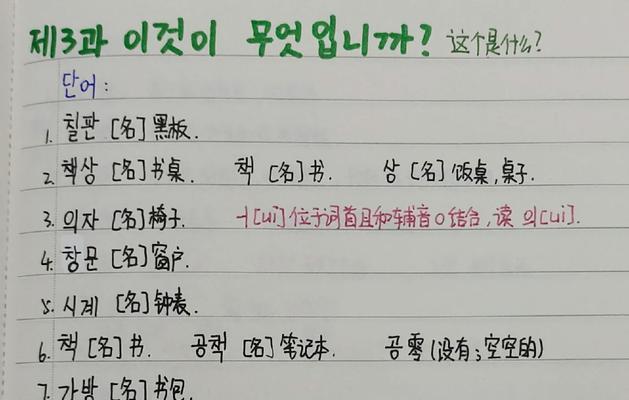 제3과 이것이 무엇입니까? 这个是什么?
단어:
1. 칠판 [名]黑板.
2. 책상 [名]书桌. 책 [名]书. 상 [名]饭桌,桌子.
3. 의자 [名]椅子. ㅢ[ui]位于词首且和辅音ㅇ结合,读 의[ui].
4. 창문 [名]窗户.
5. 시계 [名]钟表.
6. 책 [名]书. 공책 [名]笔记本. 공 零(没有;空空的)
7. 가방 [名]书包.